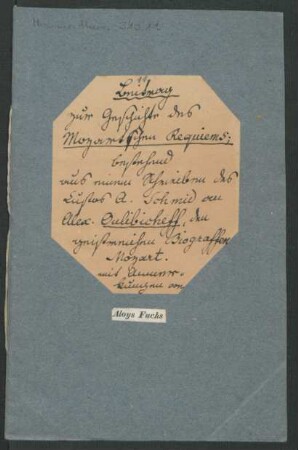 Beitrag
zur Geschichte des
Mozart'schen Requiems,
bestehend
aus einem Schreiben des
Custos A. Schmid an
Alex. Oulibicheff, den
geistreichen Biografen
Mozart.
mit Anmer-
kungen von
Aloys Fuchs